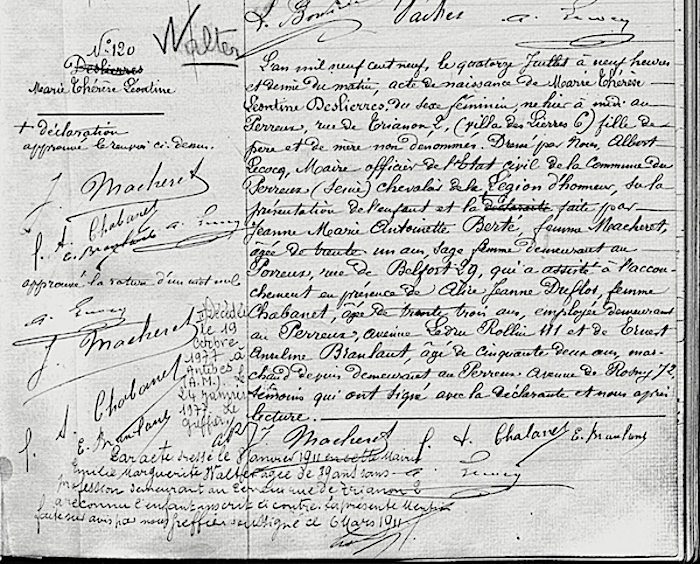 Nº 120
Deslierres
Marie Thérèse Léontine
Walter
+ déclaration
approuvé le renvoi ci-dessus.
J. Macheret
f. A. Chabanet
E. Branlant
approuvé la rature d'un mot nul
J. Macheret
f. A. Chabanet
E. Branlant
Décédée
le 19
octobre
1977 à
Antibes
(A.M.). Le
24 janvier
1978. Le
greffier
L'an mil neuf cent neuf, le quatorze Juillet à neuf heures
et demie du matin, acte de naissance de Marie Thérèse
Léontine Deslierres, du sexe féminin, née hier à midi au
Perreux, rue de Trianon 2, (villa des Lierres 6) fille de
père et de mère non dénommés. Dressé par Nous, Albert
Lecocq, Maire officier de l'Etat civil de la Commune du
Perreux (Seine) chevalier de la Légion d'honneur, sur la
présentation de l'enfant et la déclarante faite par
Jeanne Marie Antoinette Berte, femme Macheret,
âgée de trente un ans, sage femme demeurant au
Perreux, rue de Belfort 29, qui a assisté à l'accou-
chement en présence de Alice Jeanne Duflos, femme
Chabanet, âgée de trente trois ans, employée demeurant
au Perreux, avenue Ledru Rollin 111 et de Ernest
Branlant, âgé de cinquante deux ans, mar-
chand demeurant au Perreux Avenue de Rosny 72
témoins qui ont signé avec la déclarante et nous après
lecture.
J. Macheret f. A. Chabanet E. Branlant
Par acte dressé le janvier 1911 en cette Mairie
Emilie Marguerite Walter agée de 39 ans sans
profession demeurant au Perreux rue de Trianon 2
a reconnu l'enfant inscrit ci contre. La présente Mention
faite sur avis par nous greffier soussigné ce 6 Mars 1911